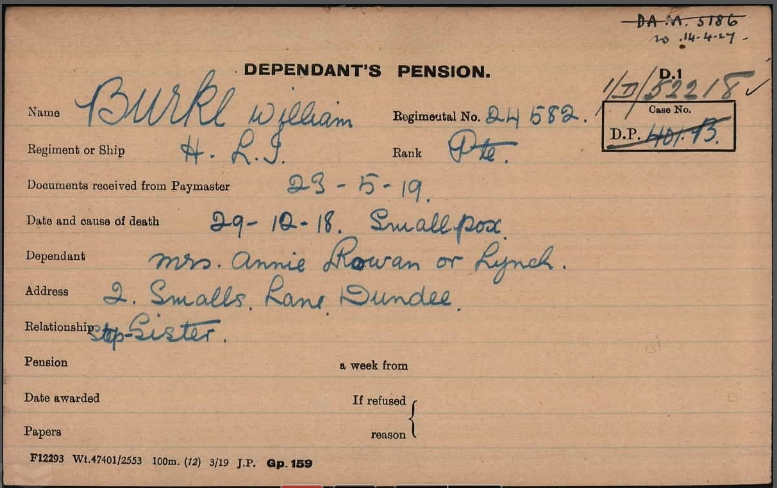 DA.A. 5186
20 .14-4-27-
DEPENDANT'S PENSION.
D.1
1/D/52218 ✓
Name Burke William Regimental No. 24582.
Case No.
D.P. 401. B.
Regiment or Ship H. L.I. Rank Pte.
Documents received from Paymaster 23-5-19.
Date and cause of death 29-12-18. Smallpox
Dependant Mrs. Annie Rowan or Lynch.
Address 2. Smalls, Lane, Dundee,
Relationship Step-Sister.
Pension a week from
Date awarded If refused {
Papers reason
F12293 Wt.47401/2553 100m. (12) 3/19 J.P. Gp.159